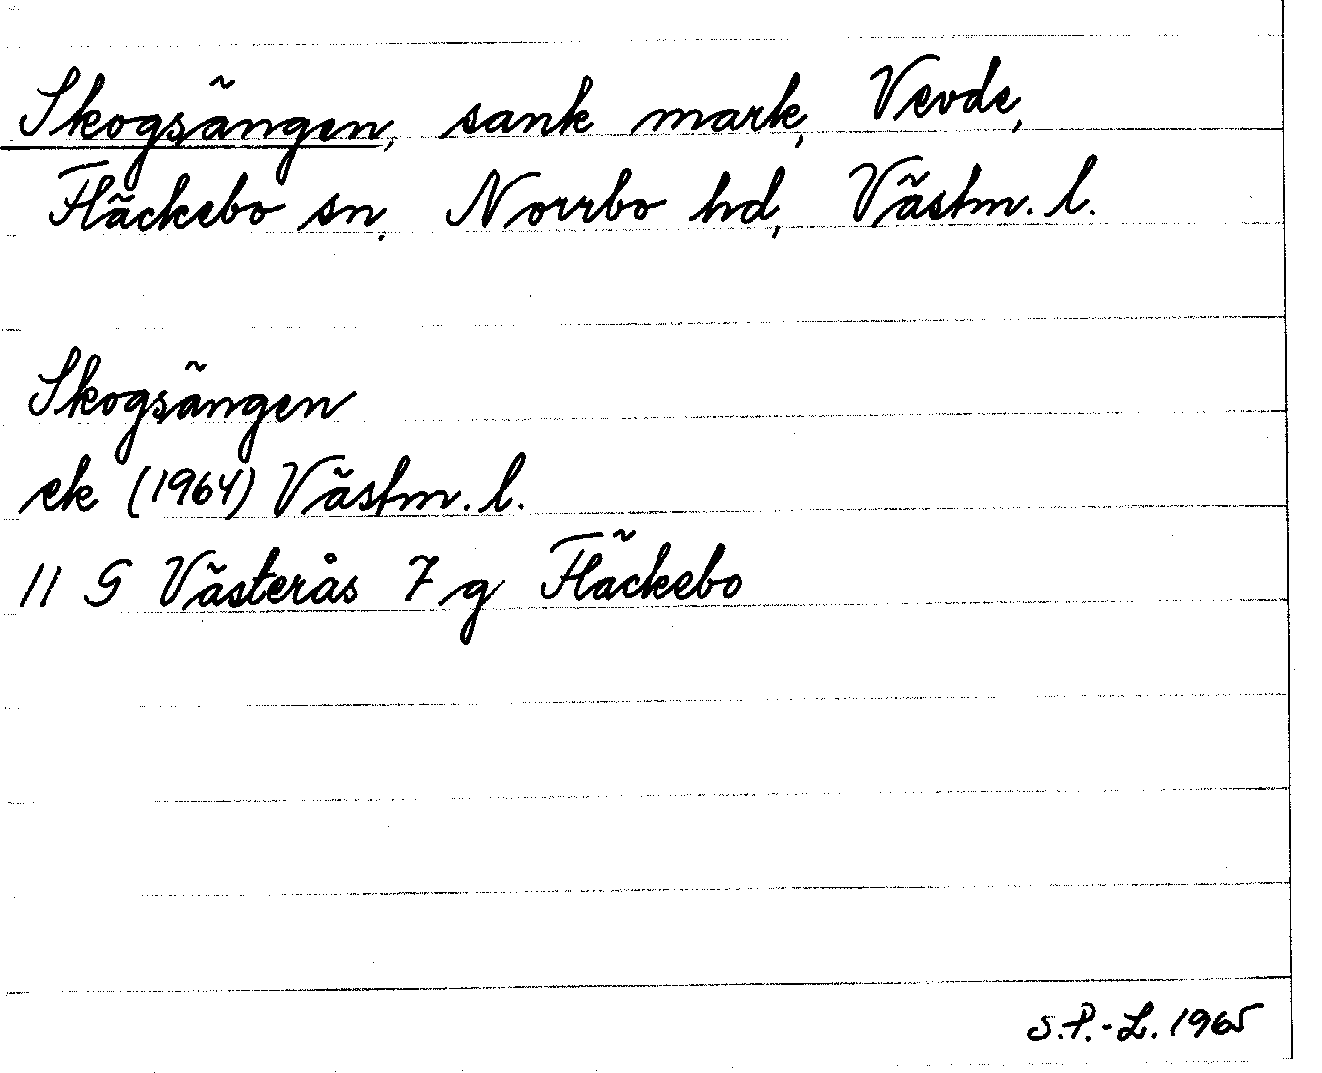 Skogsängen, sank mark, Vevde,
Fläckebo sn, Norrbo hd, Västm. l.
Skogsängen
ek (1964) Västm. l.
11 G Västerås 7 g Fläckebo
S.P.-L. 1965